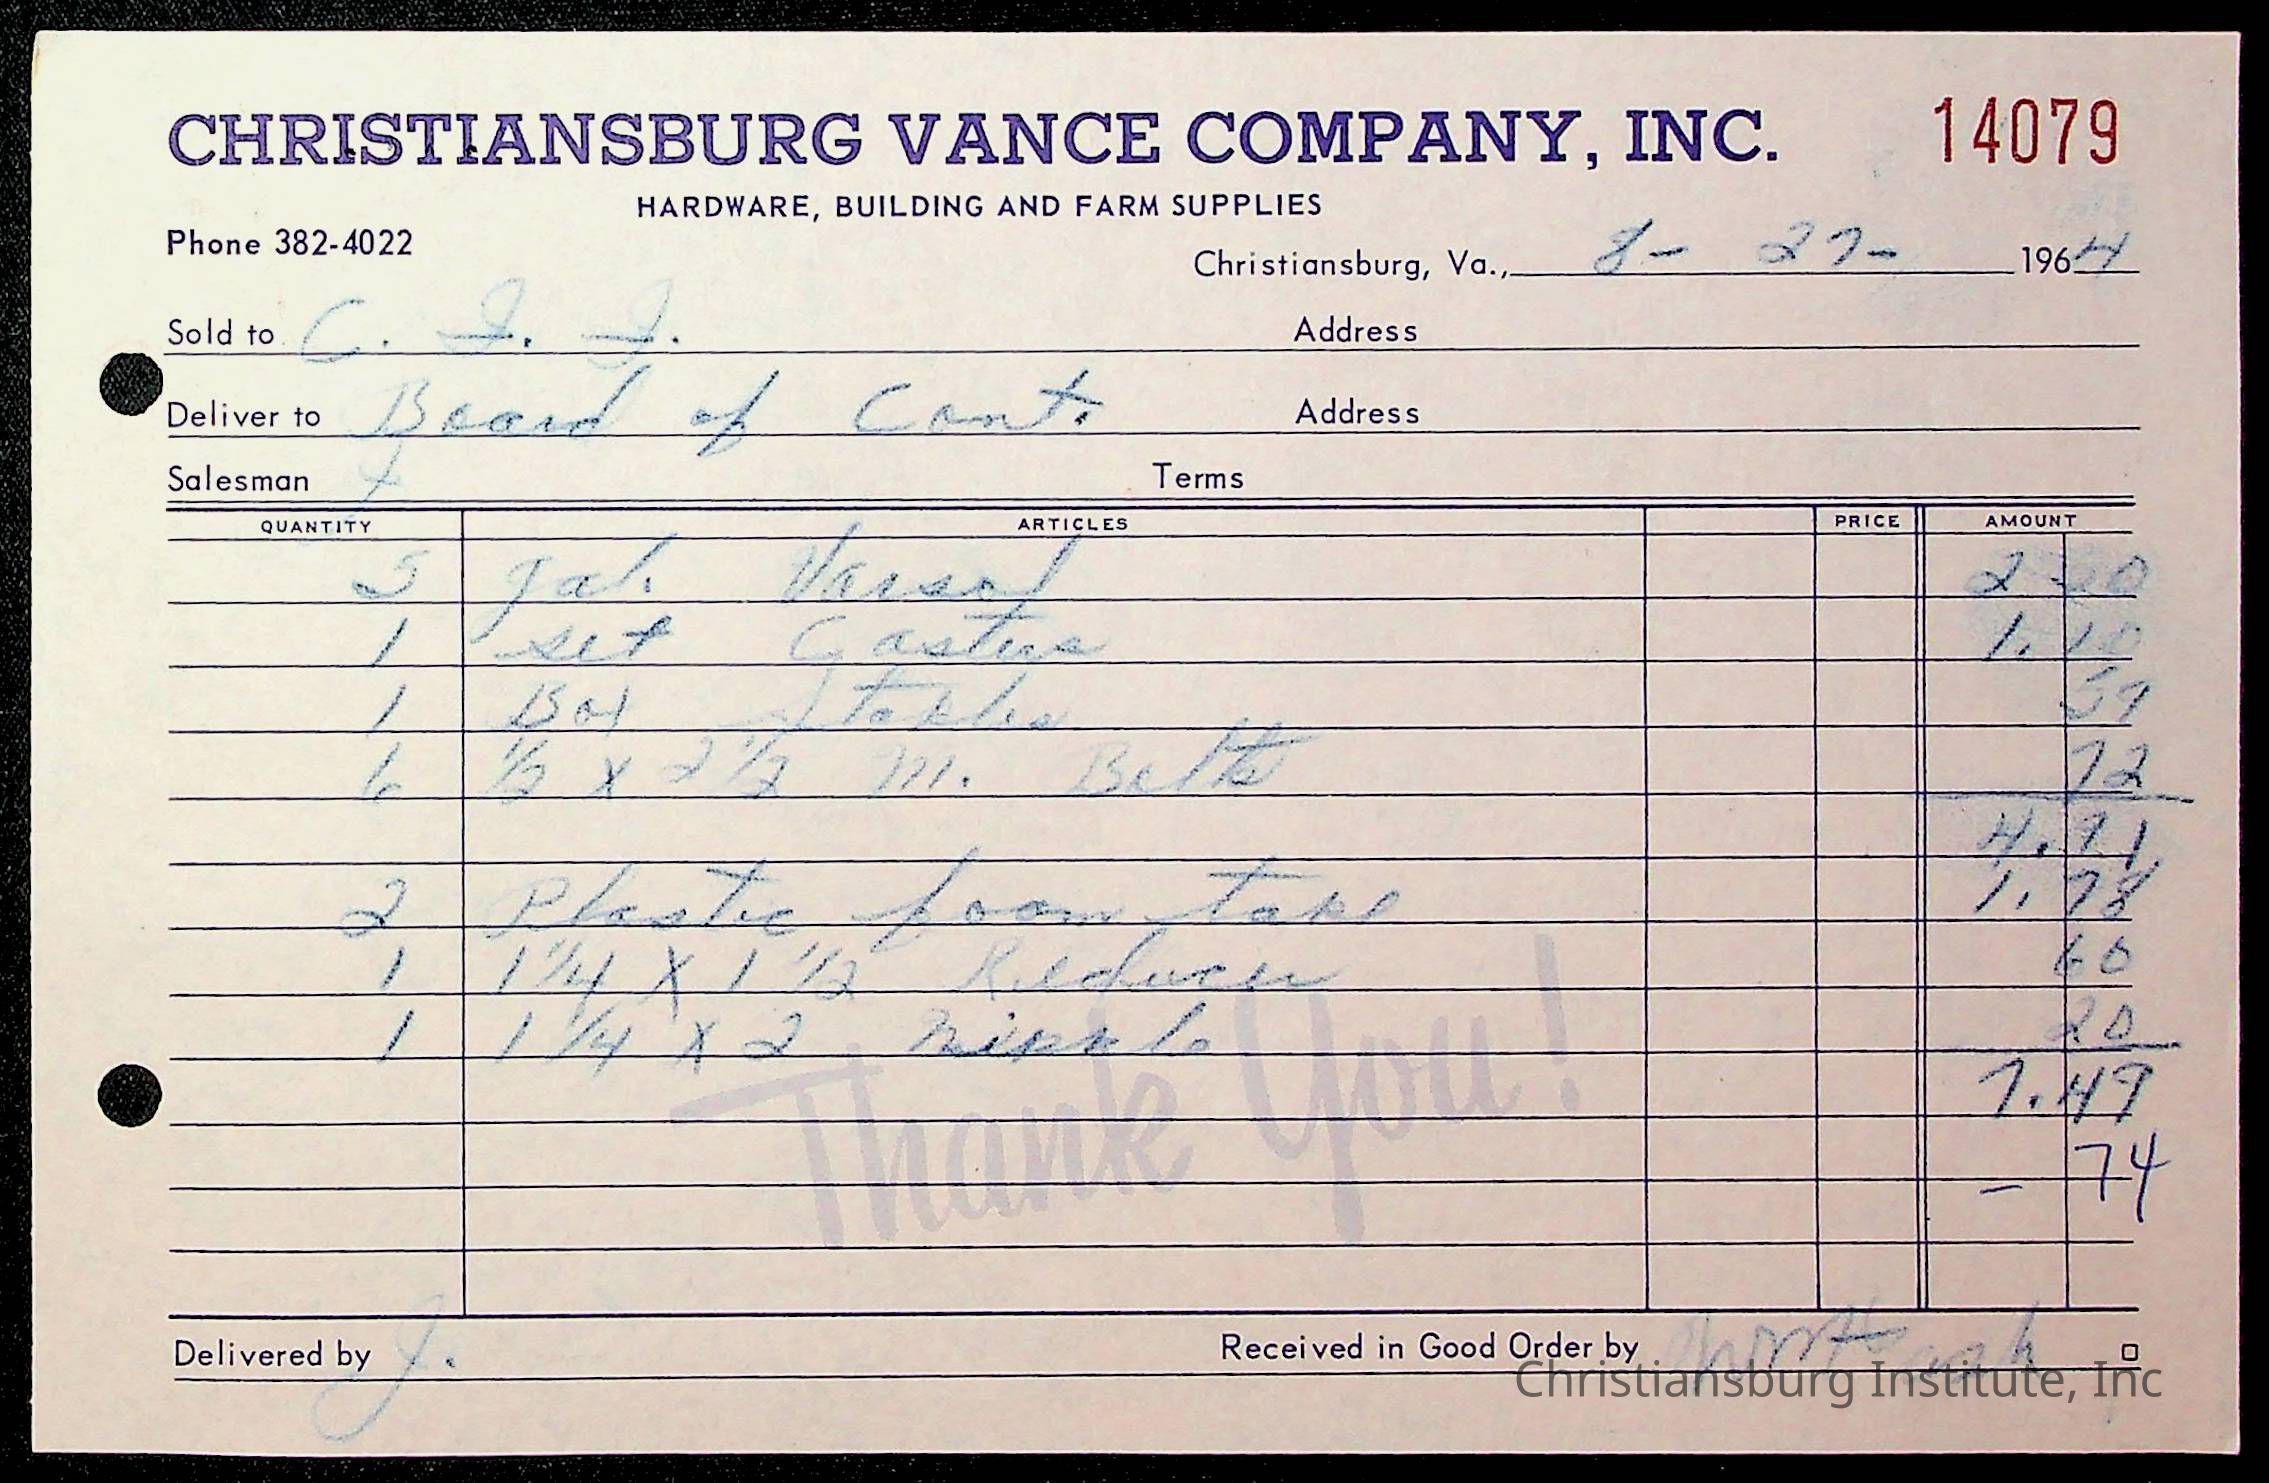 CHRISTIANSBURG VANCE COMPANY, INC. 14079
HARDWARE, BUILDING AND FARM SUPPLIES
Phone 382-4022
Christiansburg, Va., 8- 27- 1964
Sold to C. I. I. Address
Deliver to Board of Cont. Address
Salesman Terms
QUANTITY ARTICLES PRICE AMOUNT
5 gal. Varsol 2 50
1 set Casters 1.10
1 Box Staples 59
6 1/2 x 2 1/2 M. Bolts 72
4.91
2 Plastic foam tape 1.78
1 1 1/4 X 1 1/2 Reducer 60
1 1 1/4 X 2 Nipple 20
7.49
- 74
Thank You!
Delivered by J. Received in Good Order by
Christiansburg Institute, Inc